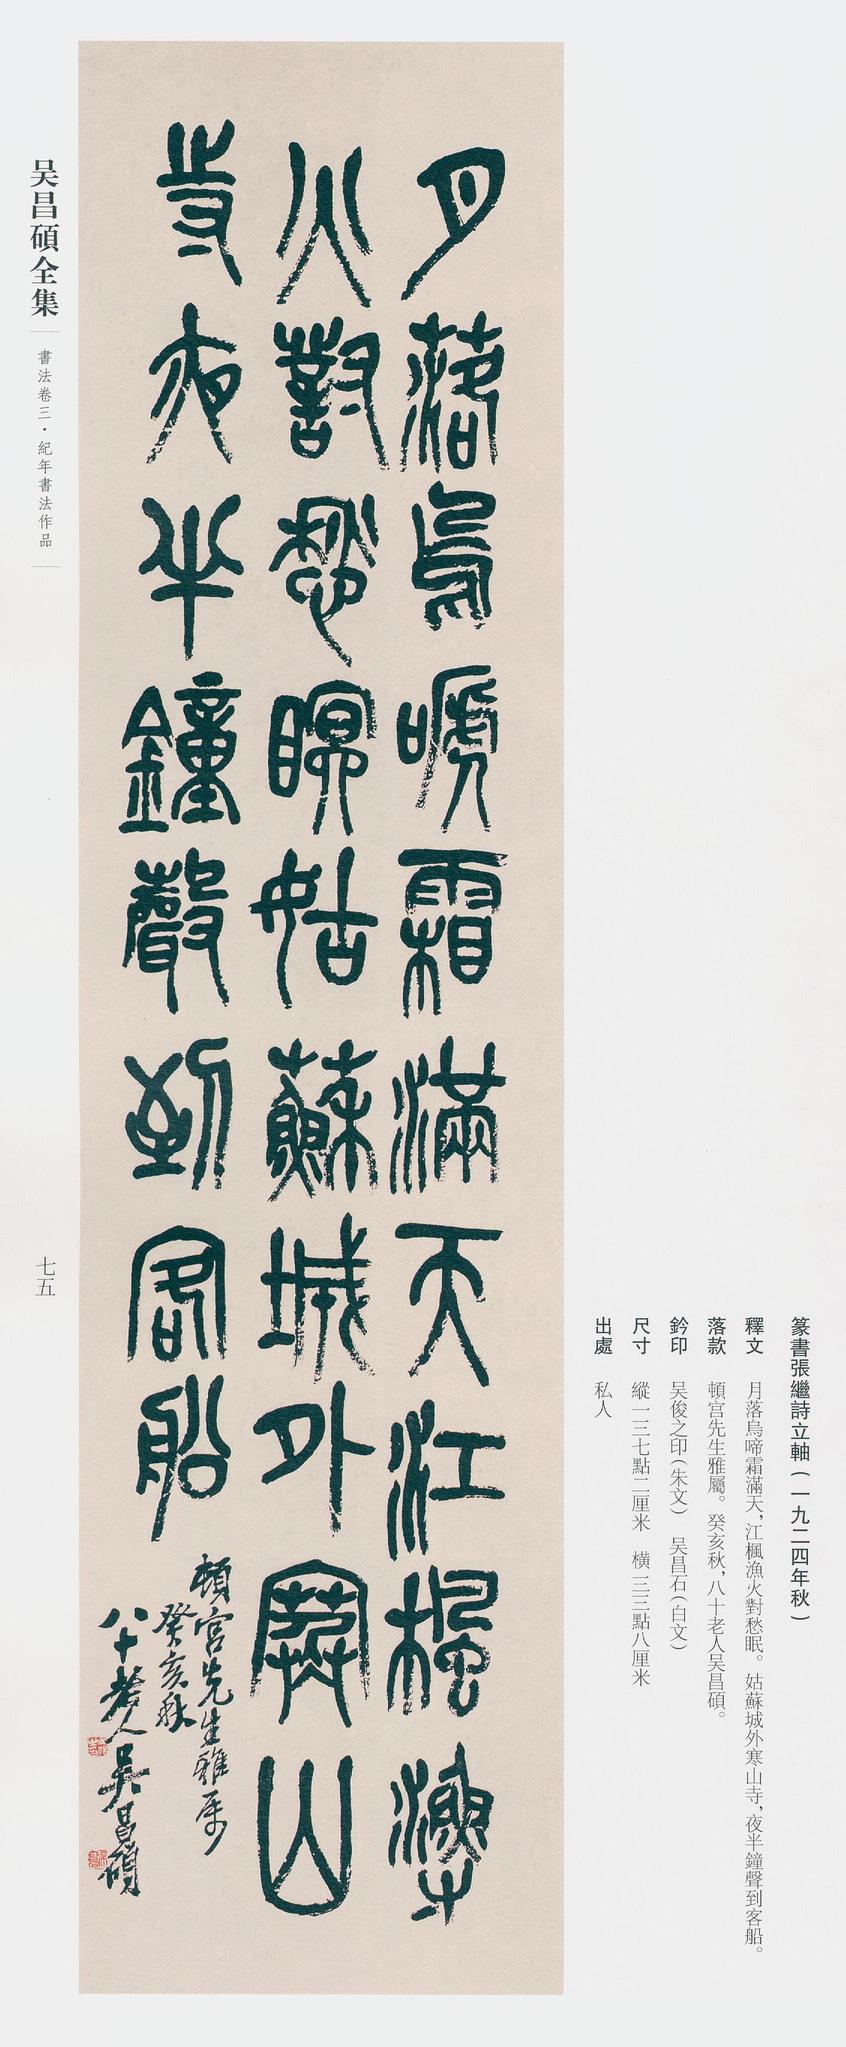 篆書張繼詩立軸(一九二四年秋)
釋文 月落烏啼霜滿天,江楓漁火對愁眠。姑蘇城外寒山寺,夜半鐘聲到客船。
落款 頓宫先生雅屬。癸亥秋,八十老人吴昌碩。
鈐印 吴俊之印(朱文) 吴昌石(白文)
尺寸 縱一三七點二厘米 橫三三點八厘米
出處 私人
月落烏嗁霜滿天江楓漁
火對愁瞑姑蘇城外寒山
寺夜半鐘聲到客船
頓宫先生雅属
癸亥秋
八十老人吴昌碩
吴昌碩全集
書法卷三·紀年書法作品
七五